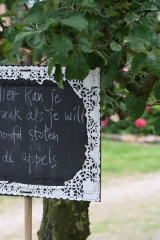 Hier kan je
vaak als je wil
hoofd stoten
de appels